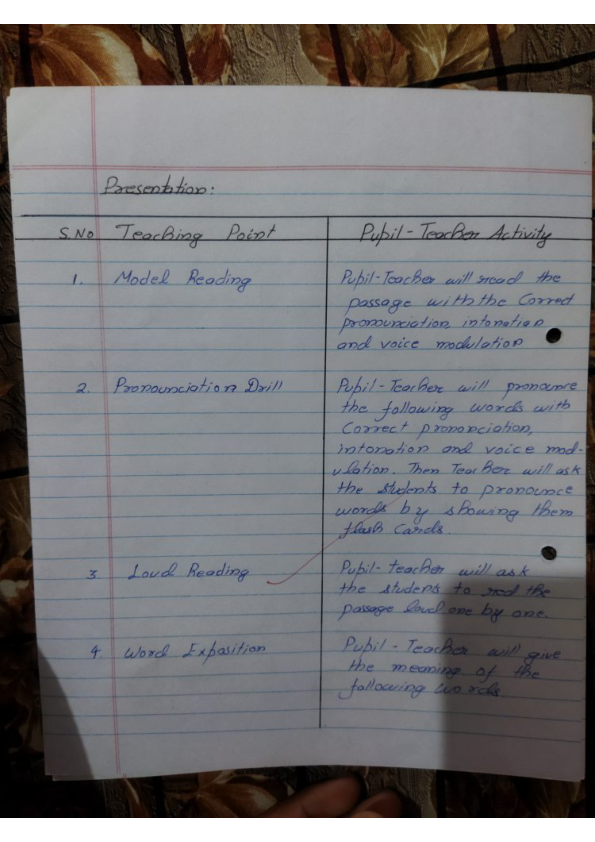 Presentation:
S.No Teaching Point Pupil-Teacher Activity
1. Model Reading Pupil-Teacher will read the
passage with the Correct
pronounciation, intonation
and voice modulation
2. Pronounciation Drill Pupil-Teacher will pronounce
the following words with
Correct pronociation,
intonation and voice mod-
ulation. Then Teacher will ask
the students to pronounce
words by showing them
flash Cards.
3. Loud Reading Pupil-teacher will ask
the students to read the
passage loud one by one.
4. Word Exposition Pupil-Teacher will give
the meaning of the
following words